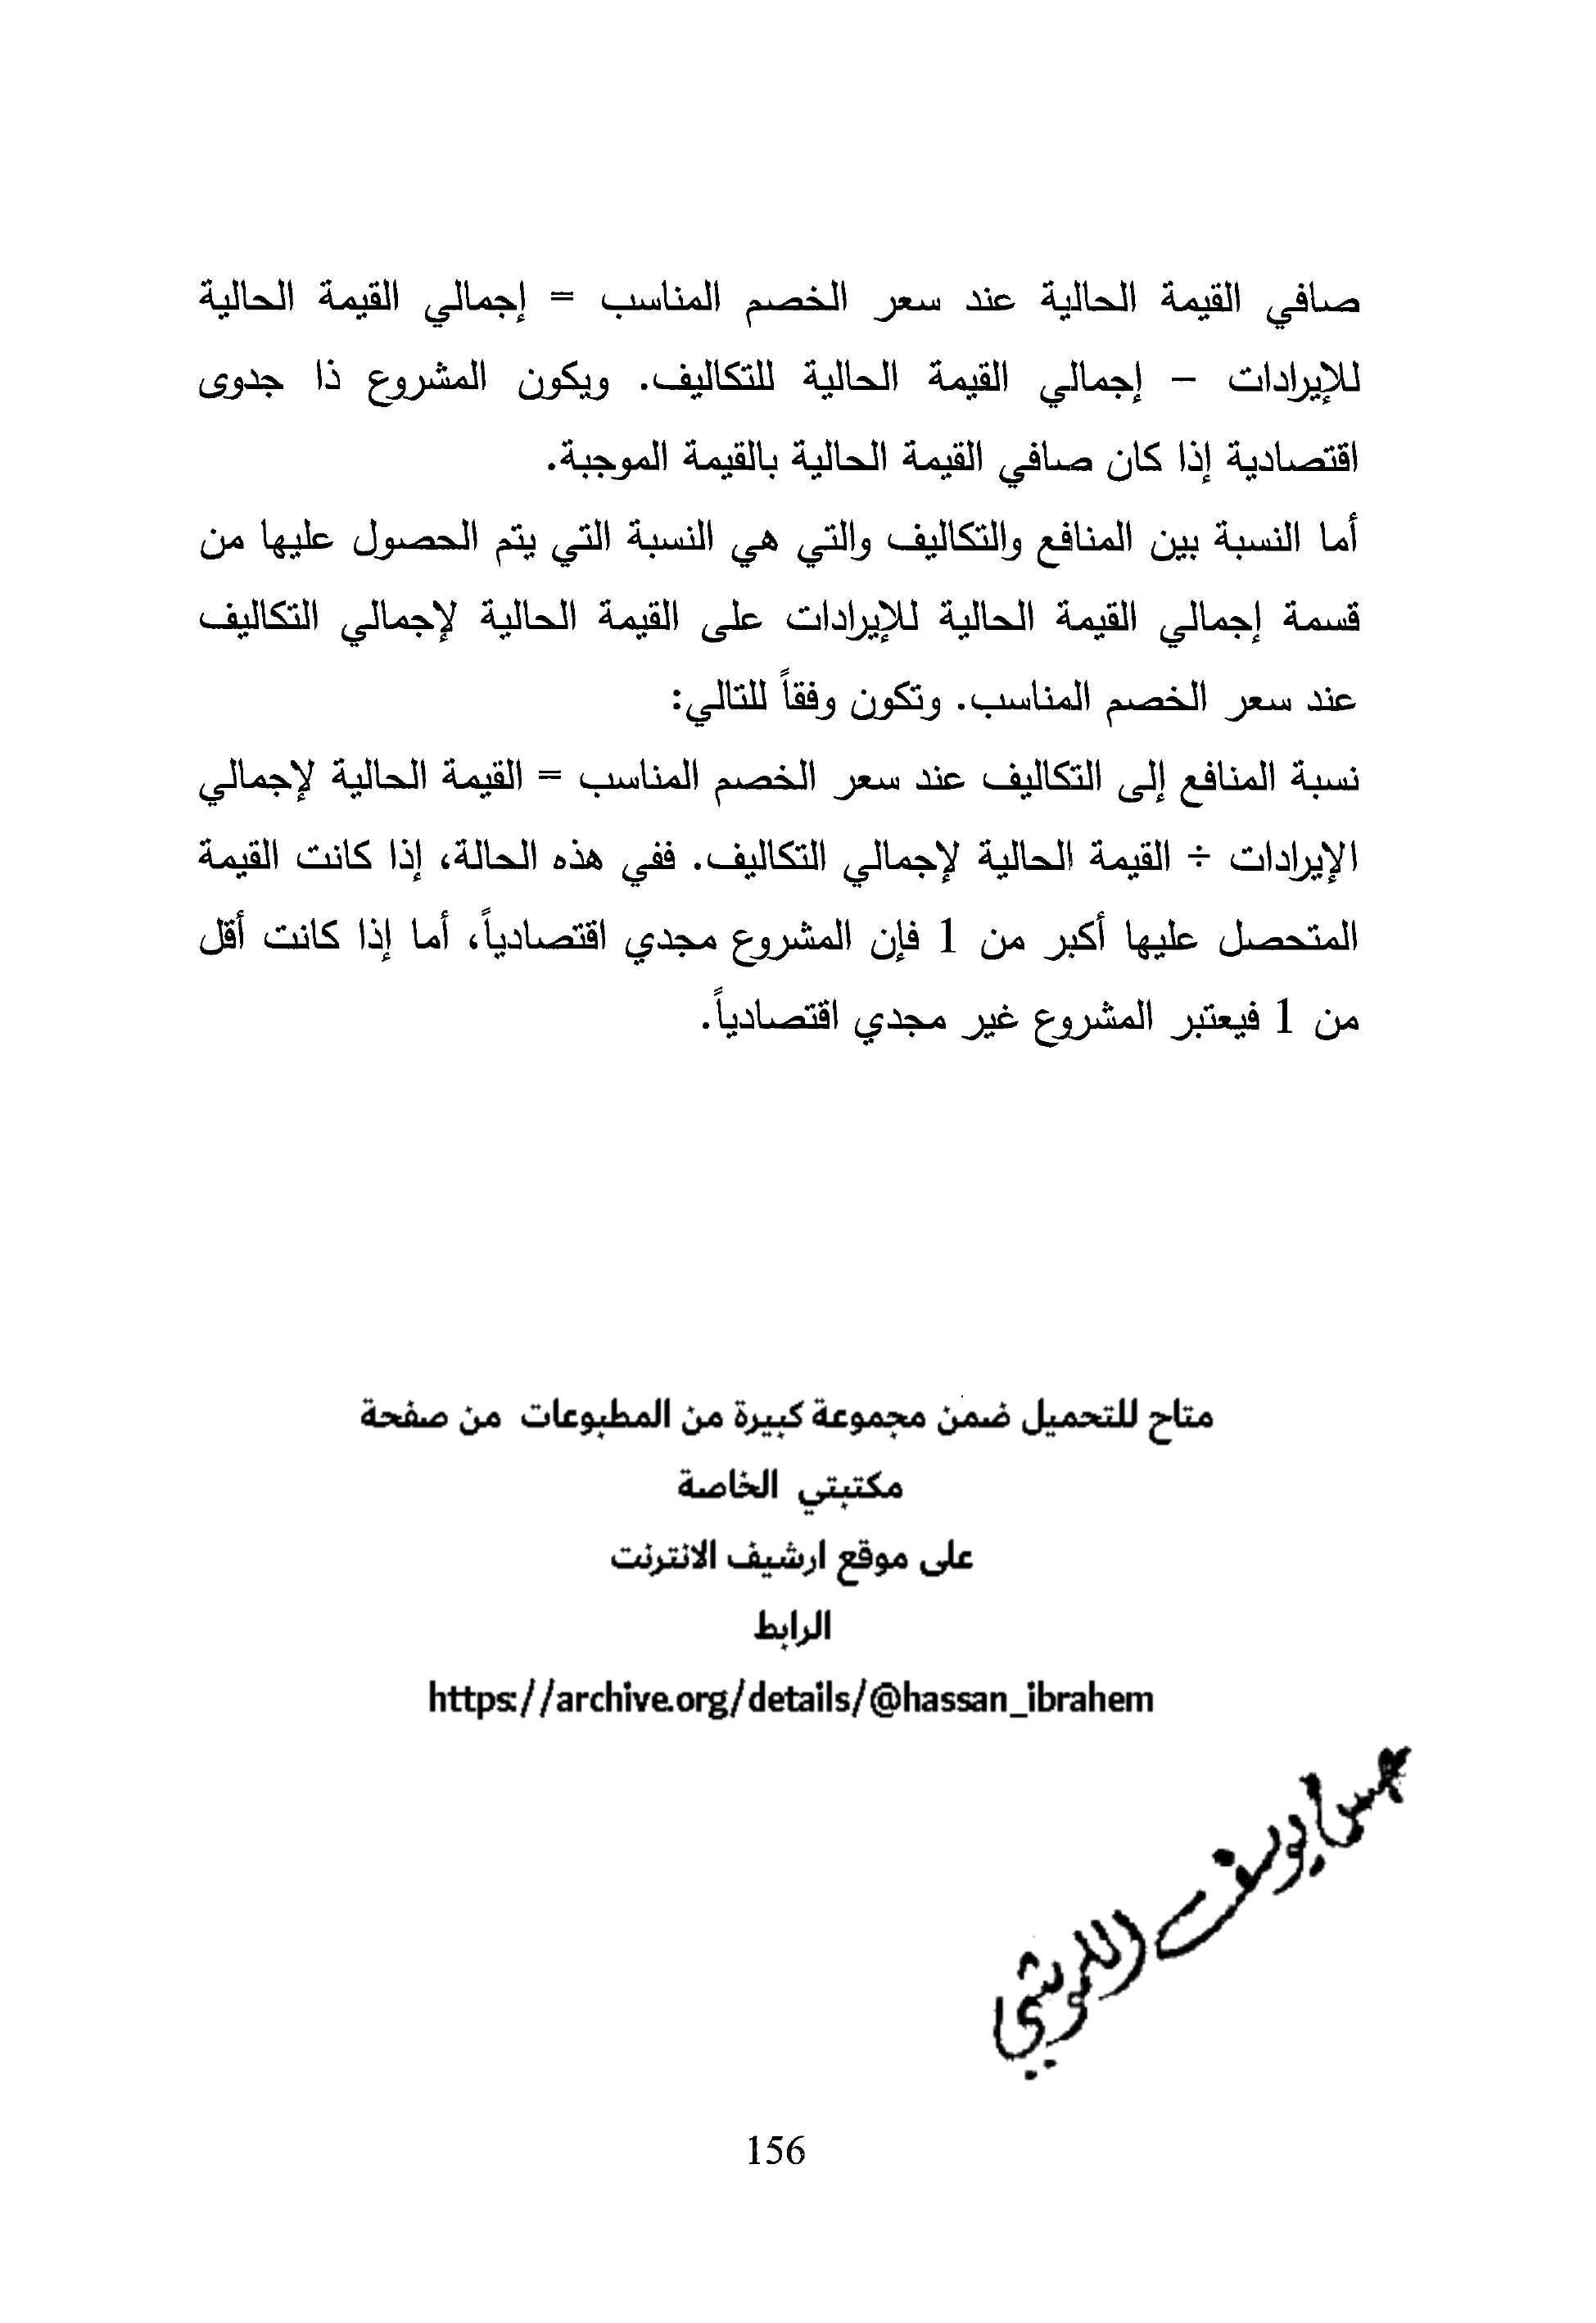 صافي القيمة الحالية عند سعر الخصم المناسب = إجمالي القيمة الحالية
للإيرادات – إجمالي القيمة الحالية للتكاليف. ويكون المشروع ذا جدوى
اقتصادية إذا كان صافي القيمة الحالية بالقيمة الموجبة.
أما النسبة بين المنافع والتكاليف والتي هي النسبة التي يتم الحصول عليها من
قسمة إجمالي القيمة الحالية للإيرادات على القيمة الحالية لإجمالي التكاليف
عند سعر الخصم المناسب. وتكون وفقاً للتالي:
نسبة المنافع إلى التكاليف عند سعر الخصم المناسب = القيمة الحالية لإجمالي
الإيرادات ÷ القيمة الحالية لإجمالي التكاليف. ففي هذه الحالة، إذا كانت القيمة
المتحصل عليها أكبر من 1 فإن المشروع مجدي اقتصادياً، أما إذا كانت أقل
من 1 فيعتبر المشروع غير مجدي اقتصادياً.
متاح للتحميل ضمن مجموعة كبيرة من المطبوعات من صفحة
مكتبتي الخاصة
على موقع ارشيف الانترنت
الرابط
https://archive.org/details/@hassan_ibrahem
156